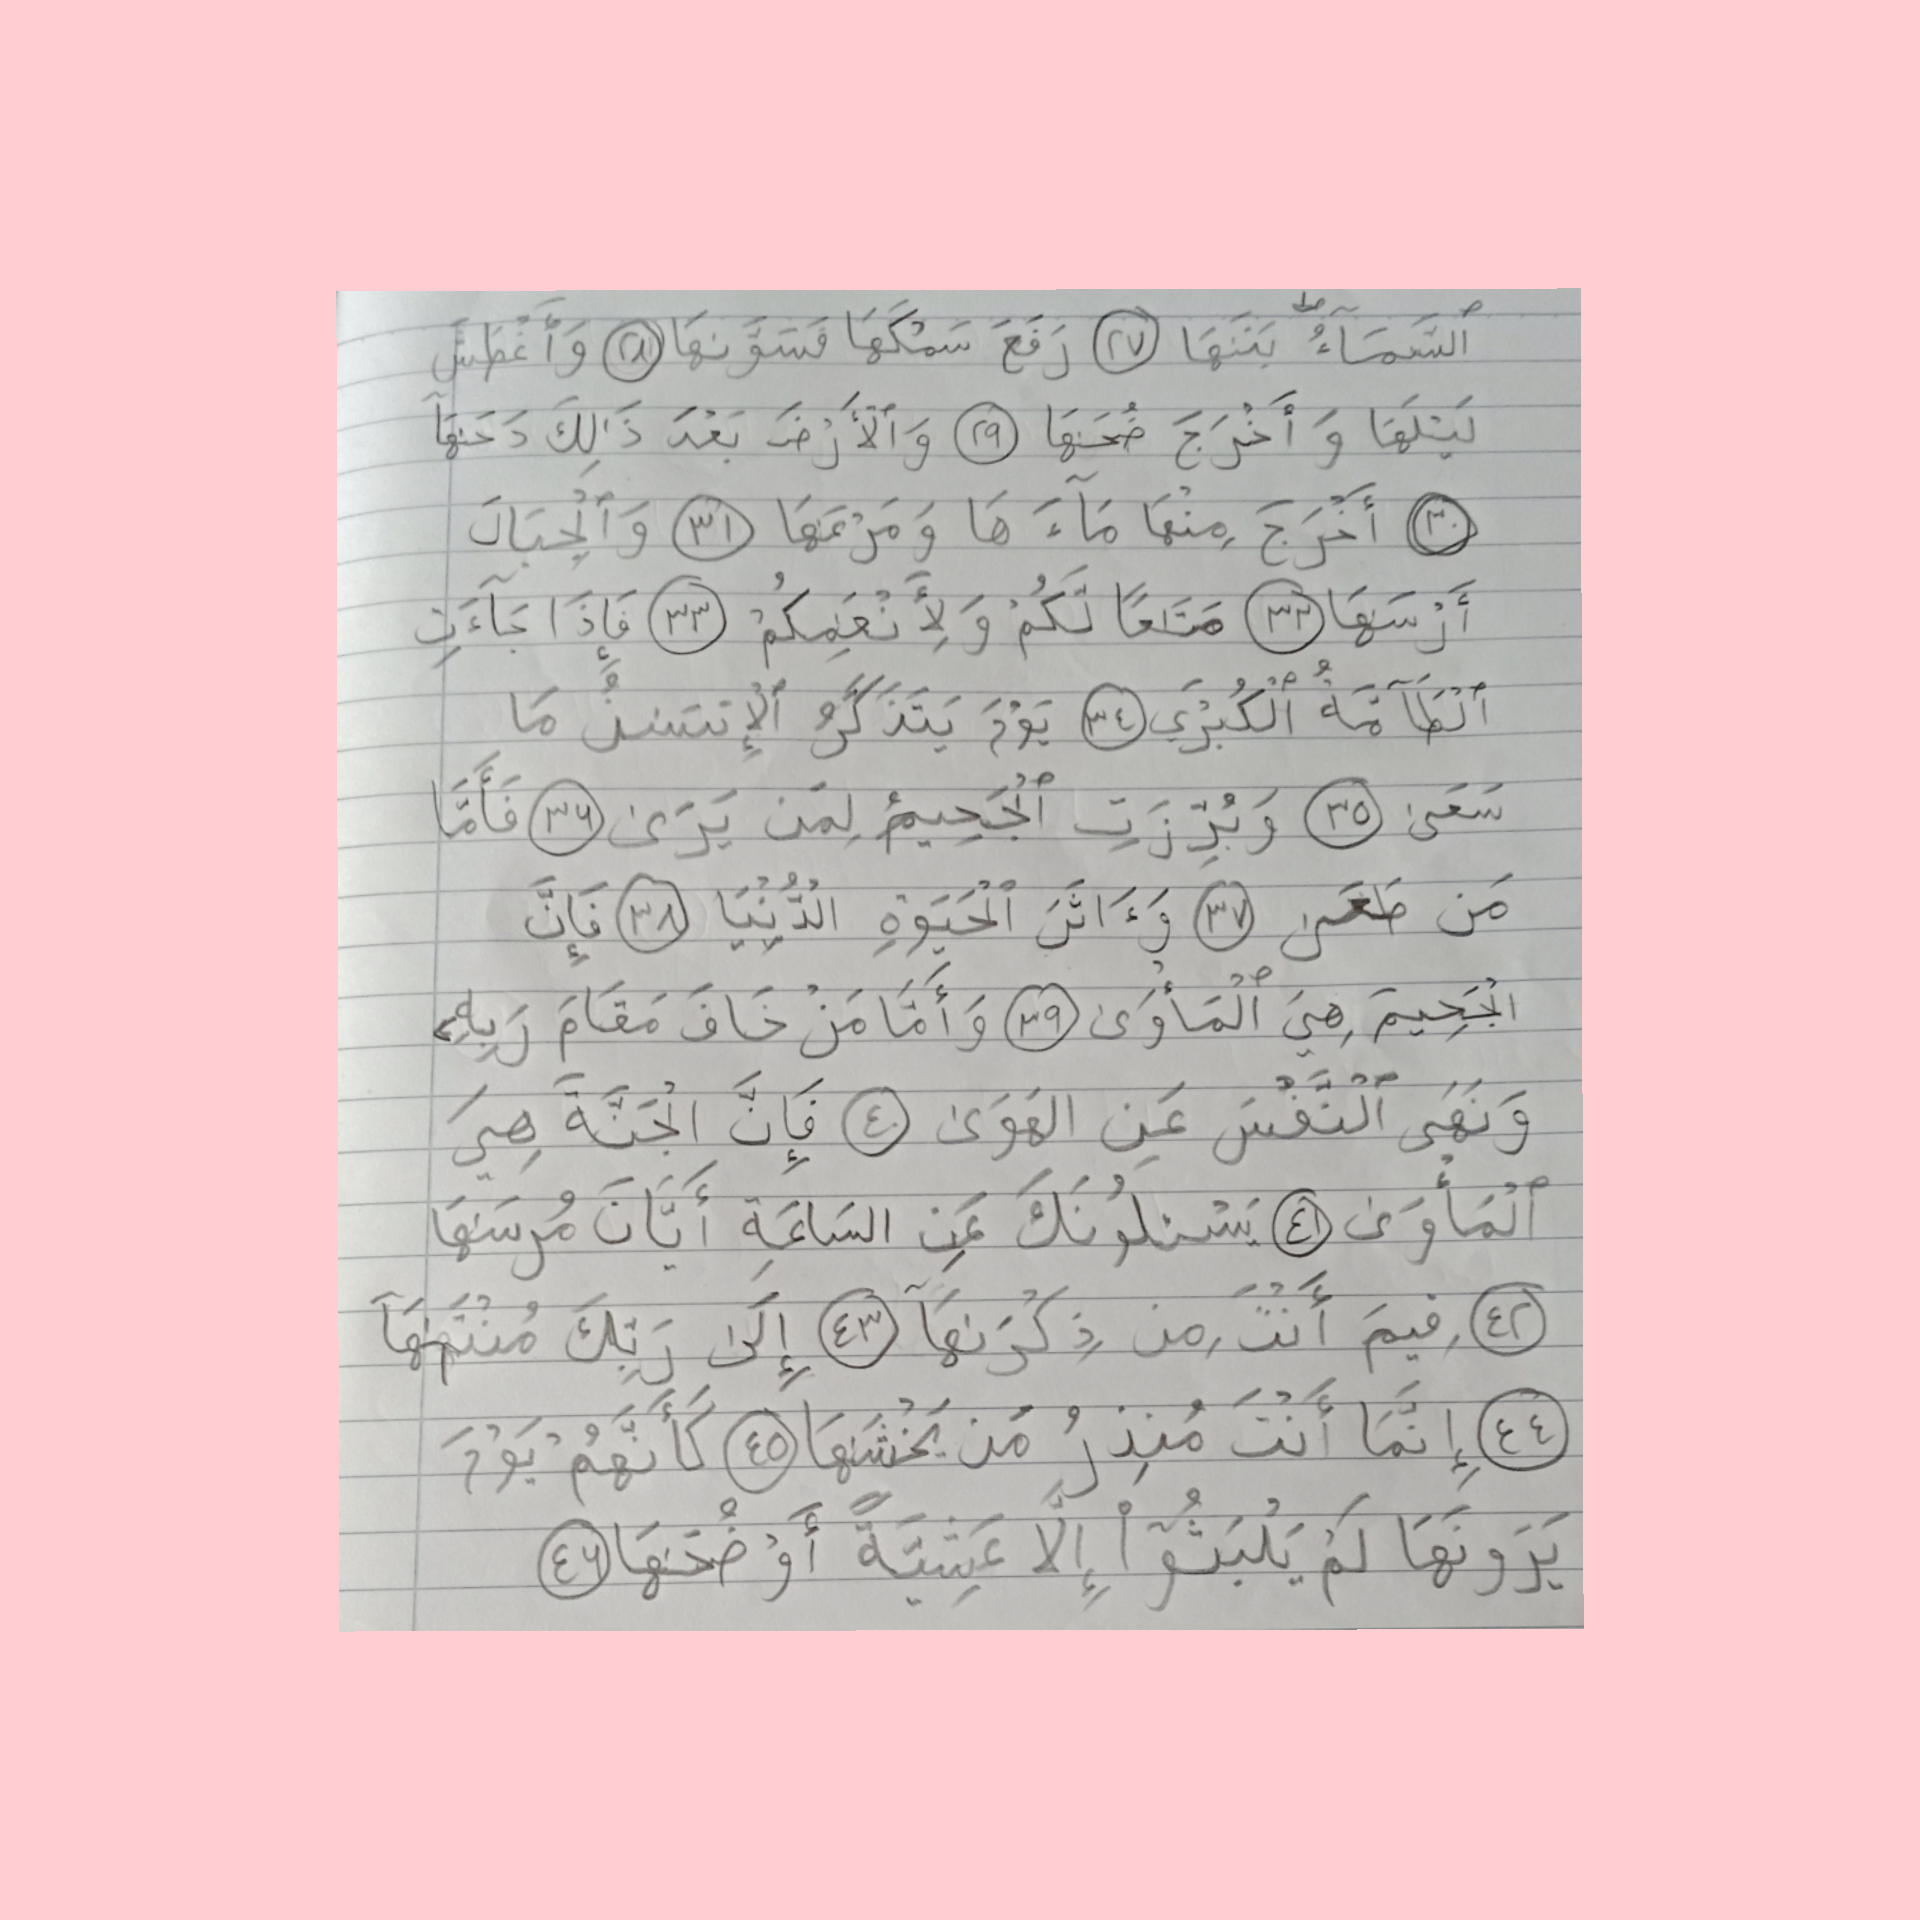 ٱلسَّمَآءُ ۚ بَنَىٰهَا ٢٧ رَفَعَ سَمْكَهَا فَسَوَّىٰهَا ٢٨ وَأَغْطَشَ
لَيْلَهَا وَأَخْرَجَ ضُحَىٰهَا ٢٩ وَٱلْأَرْضَ بَعْدَ ذَٰلِكَ دَحَىٰهَآ
٣٠ أَخْرَجَ مِنْهَا مَآءَهَا وَمَرْعَىٰهَا ٣١ وَٱلْجِبَالَ
أَرْسَىٰهَا ٣٢ مَتَـٰعًا لَّكُمْ وَلِأَنْعَـٰمِكُمْ ٣٣ فَإِذَا جَآءَتِ
ٱلْطَآمَّةُ ٱلْكُبْرَي ٣٤ يَوْمَ يَتَذَكَّرُ ٱلْإِنسَـٰنُ مَا
سَعَىٰ ٣٥ وَبُرِّزَتِ ٱلْجَحِيمُ لِمَن يَرَىٰ ٣٦ فَأَمَّا
مَن طَغَىٰ ٣٧ وَءَاثَرَ ٱلْحَيَوٰةِ الْدُّنْيَا ٣٨ فَإِنَّ
الْجَحِيمَ هِيَ ٱلْمَأْوَىٰ ٣٩ وَأَمَّا مَنْ خَافَ مَقَامَ رَبِهِۦ
وَنَهَى ٱلْنَّفْسَ عَنِ الهَوَىٰ ٤٠ فَإِنَّ الْجَنَّةَ هِيَ
ٱلْمَأْوَىٰ ٤١ يَسْـَٔلُونَكَ عَنِ السَاعَةِ أَيَّانَ مُرْسَىٰهَا
٤٢ فِيمَ أَنْتَ مِن ذِكْرَىٰهَآ ٤٣ إِلَىٰ رَبِّكَ مُنْتَهَىٰهَآ
٤٤ إِنَّمَا أَنْتَ مُنذِرُ مَن يَخْشَىٰهَا ٤٥ كَأَنَّهُمْ يَوْمَ
يَرَوْنَهَا لَمْ يَلْبَثُوٓا۟ إِلَّا عَشِيَّةً أَوْ ضُحَىٰهَا ٤٦